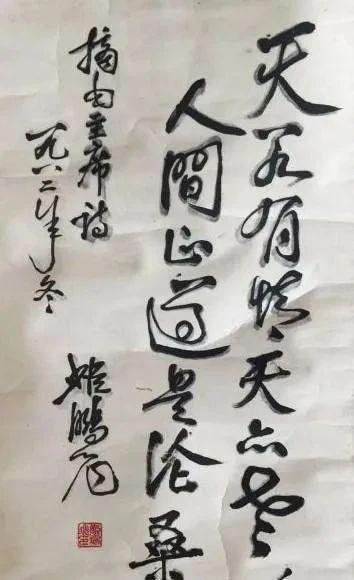 天若有情天亦老
人間正道是沧桑
摘毛主席诗
一九八二年冬
姬鹏飞